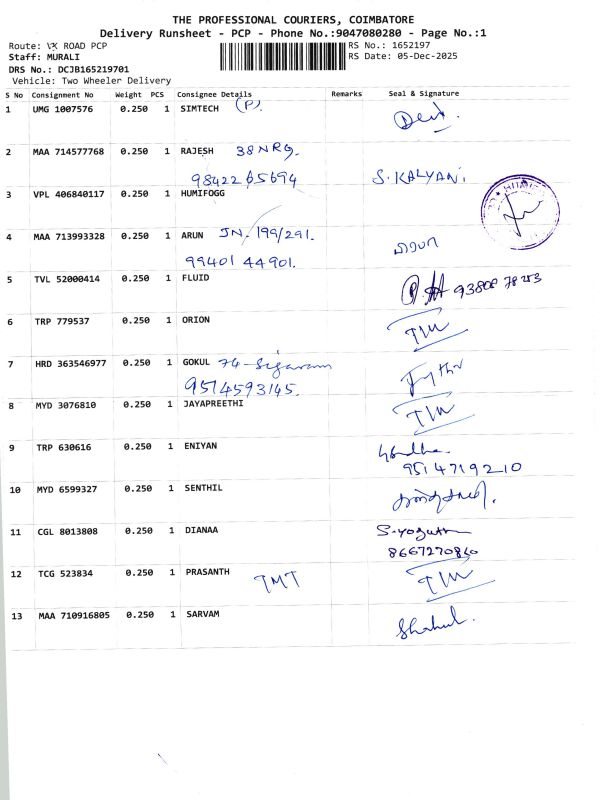 THE PROFESSIONAL COURIERS, COIMBATORE
Delivery Runsheet - PCP - Phone No.:9047080280 - Page No.:1
Route: VK ROAD PCP RS No.: 1652197
Staff: MURALI RS Date: 05-Dec-2025
DRS No.: DCJB165219701
Vehicle: Two Wheeler Delivery
S No Consignment No Weight PCS Consignee Details Remarks Seal & Signature
1 UMG 1007576 0.250 1 SIMTECH (P).
2 MAA 714577768 0.250 1 RAJESH 38 NRG.
98422 65694 S. KALYANI
3 VPL 406840117 0.250 1 HUMIFOGG
4 MAA 713993328 0.250 1 ARUN JN. 199/291.
99401 44901.
5 TVL 52000414 0.250 1 FLUID 93808 78253
6 TRP 779537 0.250 1 ORION
7 HRD 363546977 0.250 1 GOKUL 74-Sigaram
9514593145.
8 MYD 3076810 0.250 1 JAYAPREETHI
9 TRP 630616 0.250 1 ENIYAN
9514719210
10 MYD 6599327 0.250 1 SENTHIL
11 CGL 8013808 0.250 1 DIANAA
8667270860
12 TCG 523834 0.250 1 PRASANTH TMT
13 MAA 710916805 0.250 1 SARVAM Shahul.